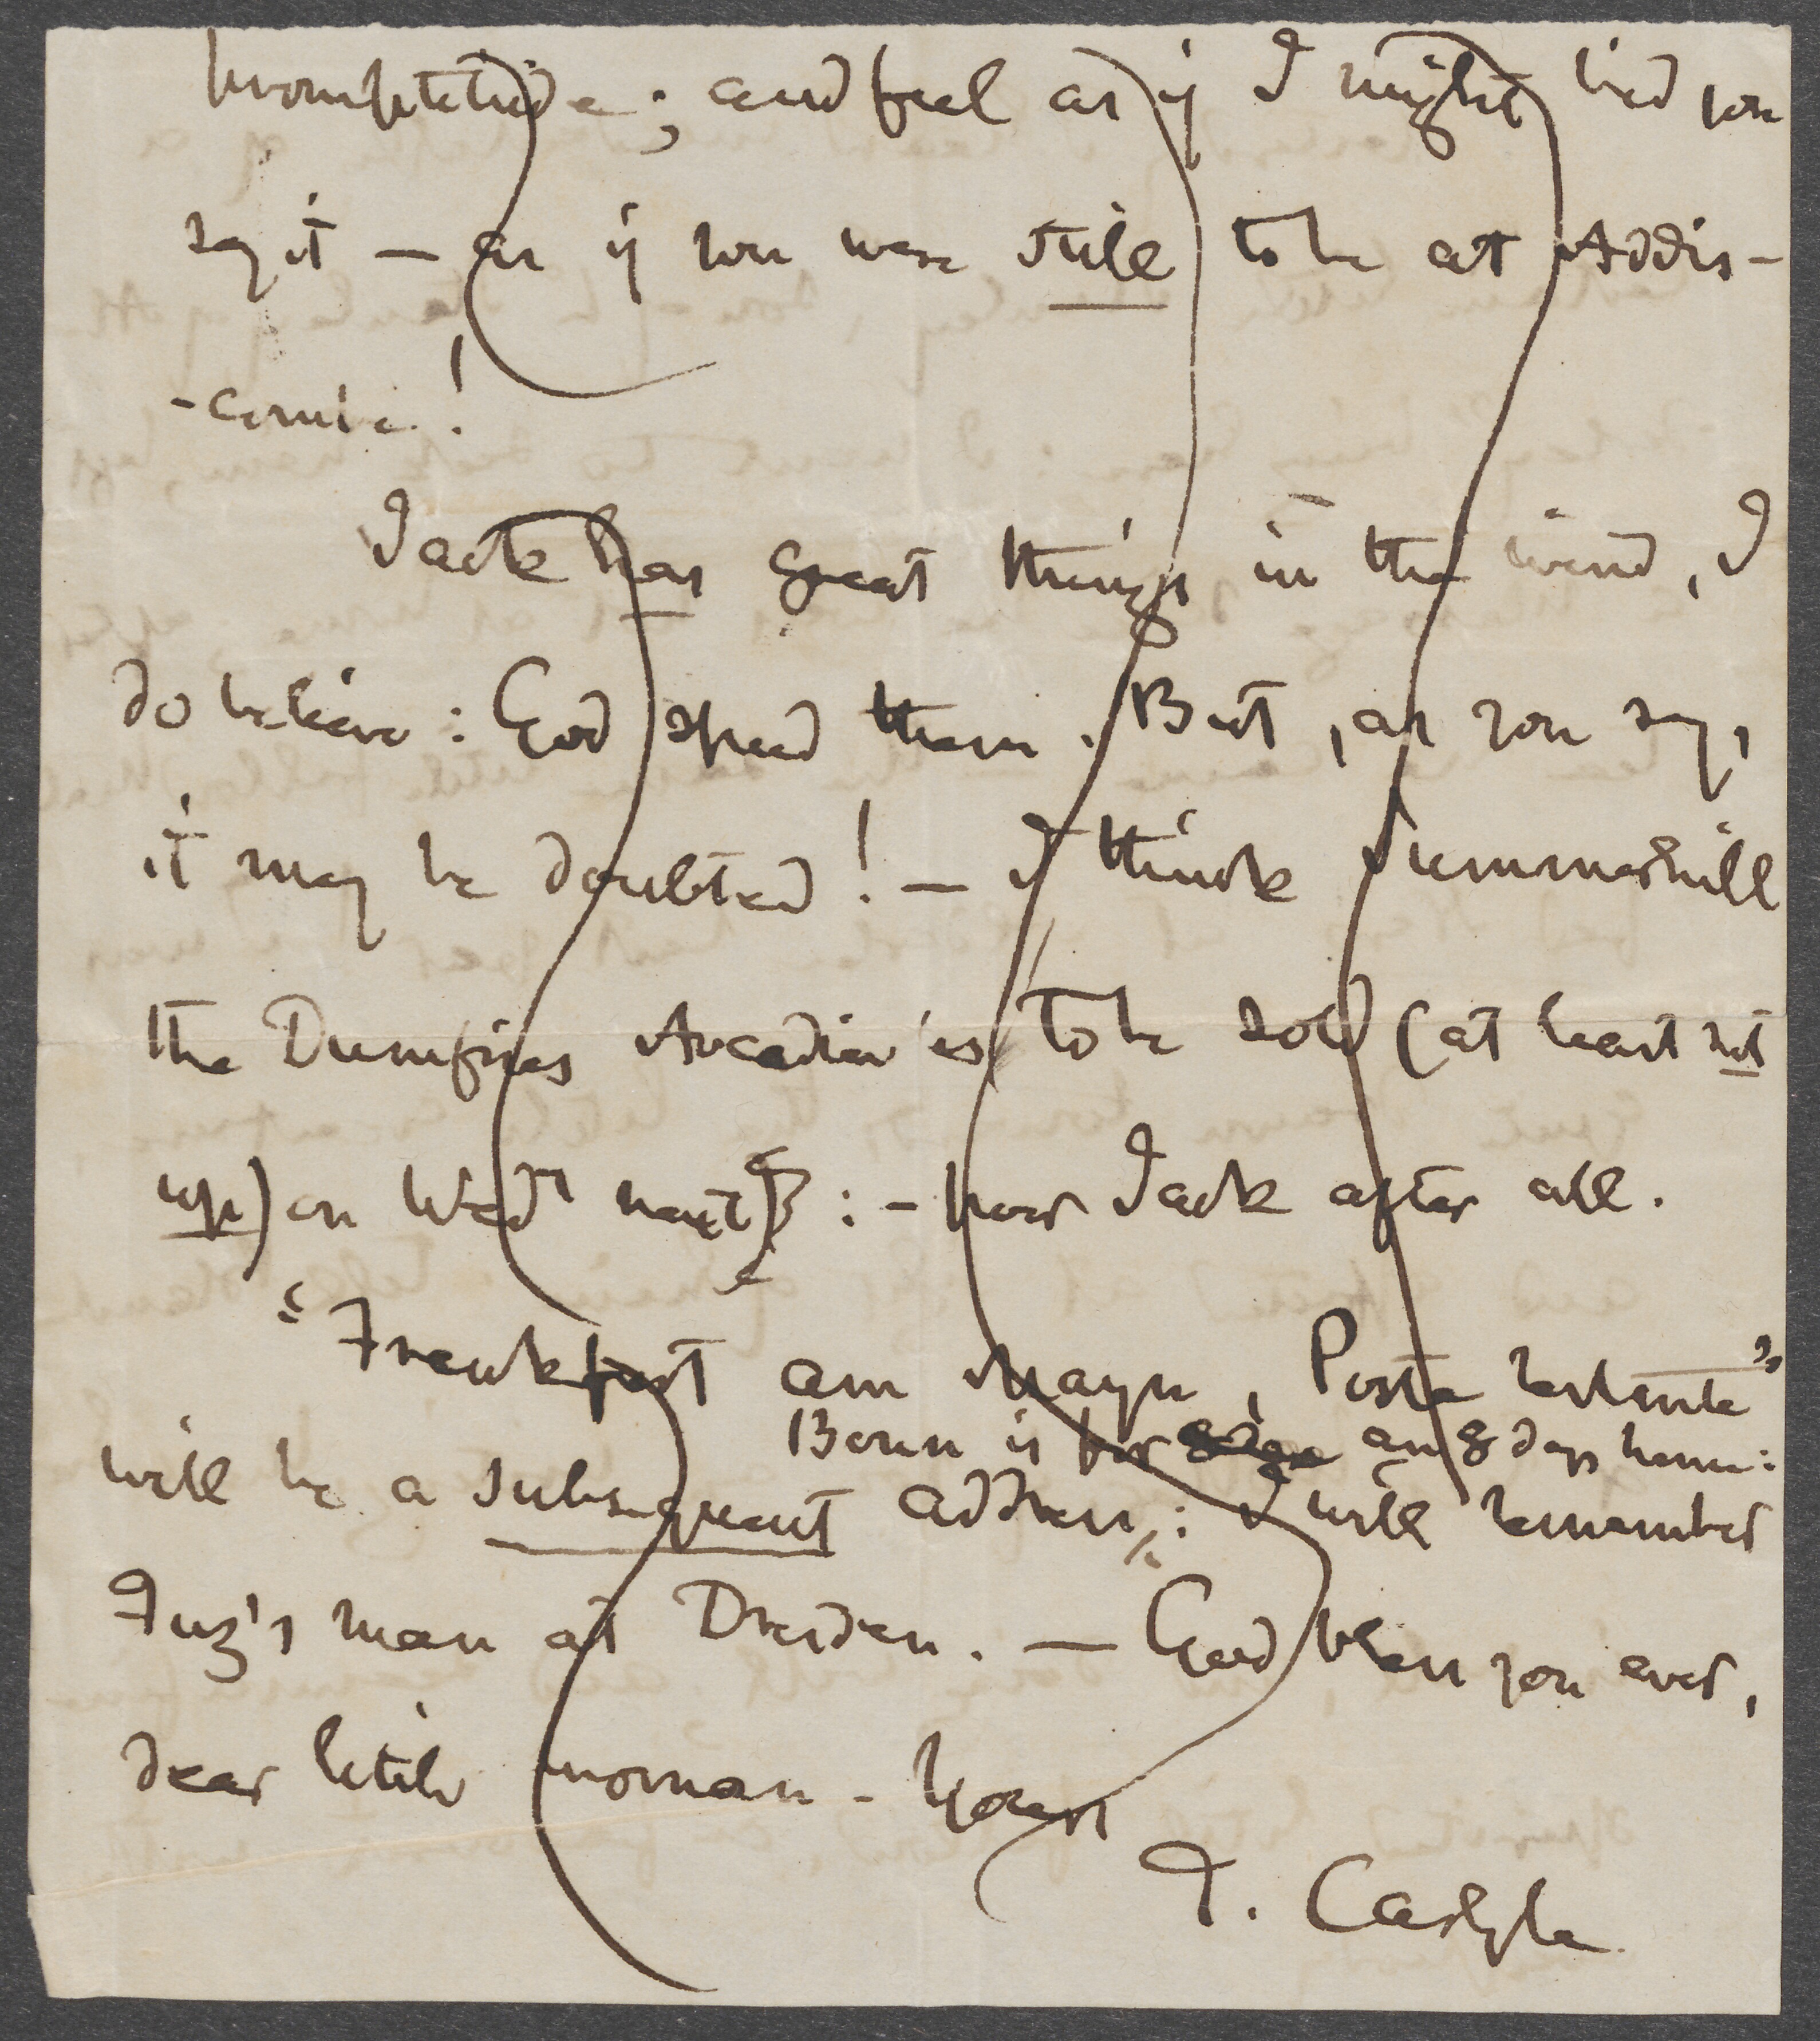 promptitude; and feel as if I might bid you
say it — as if you were still to be at Addis-
-combe!
Jack has great things in the wind, I
do believe: God speed them. But, as you say,
it may be doubted! — I think Summerhill
the Dumfries Arcadia is to be sold (at least set
up) on Wedʸ next: — poor Jack after all.
"Frankfurt am Mayn, Poste restante"
Bonn is for an 8 days hence:
will be a subsequent address; I will remember
Fuz's man at Dresden. — God bless you ever,
dear little woman. Yours
T. Carlyle